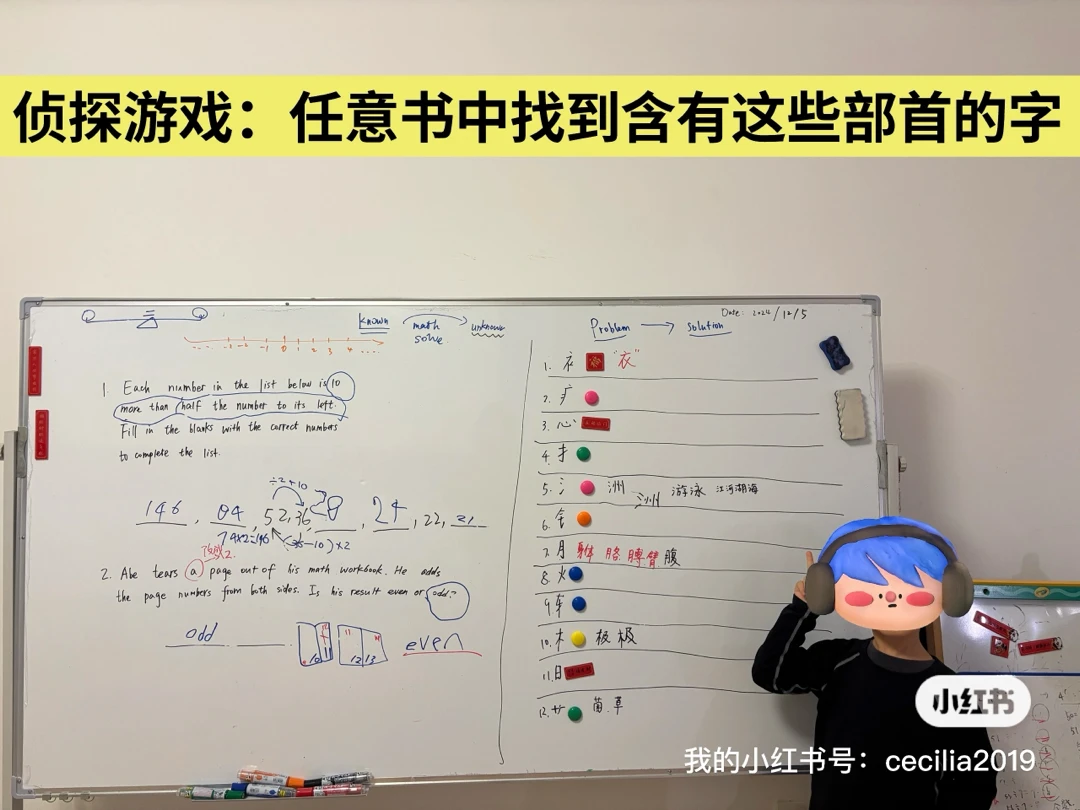 侦探游戏：任意书中找到含有这些部首的字
Known
math
solve
unknown
Date: 2024/12/5
Problem → solution
1. Each number in the list below is 10
more than half the number to its left.
Fill in the blanks with the correct numbers
to complete the list.
÷2+10
146, 84, 52, 36, 28, 24, 22, 21
2. Abe tears a page out of his math workbook. He adds
the page numbers from both sides. Is his result even or odd?
odd
even
12 13
1. 衤 "衣"
2. 疒
3. 心
4. 扌
5. 氵 洲 游泳 江河湖海
6. 钅
7. 月 胳 膊 臂 腹
8. 火
9. 车
10. 木 板 极
11. 日
12. 艹 苗 草
小红书
我的小红书号：cecilia2019